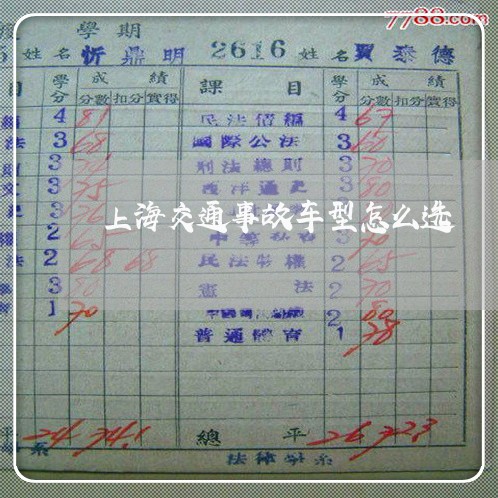 7788.com
學期
姓名 忻鼎明 2616 姓名 賈泰德
目 學分 成績 課目 學分 成績
分數 扣分 實得 分數 扣分 實得
4 81 民法債編 4 67
法 3 68 國際公法 3 60
3 刑法總則 3 70
3 75 西洋通史 3 80
3 76 3
上海交通事故车型怎么选
2 65 2 70
法 2 68 68 民法物權 2 65
3 80 憲法 2 70
1 70 2 80
普通體育 1 78
平 24 74.1 總平 26 72.3
系 法律學系